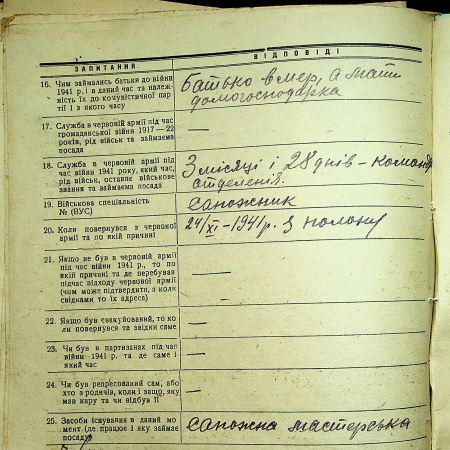 ЗАПИТАННЯ
ВІДПОВІДІ
16. Чим займались батьки до війни
1941 р. і в даний час та належ-
ність їх до комуністичної пар
тії і з якого часу
Батько вмер, а мати
домогосподарка
17. Служба в червоній армії під час
громадянської війни 1917—22
років, рід військ та займаєма
посада
—
18. Служба в червоній армії під
час війни 1941 року, який час,
рід військ, останнє військове
звання та займаєма посада
3 місяці і 28 днів - команд
отделенія.
19. Військова спеціальність
№ (ВУС)
Сапожник
20. Коли повернувся з червоної
армії та по якій причині
24/XI - 1941 р. З полону
21. Якщо не був в червоній армії
під час війни 1941 р., то по
якій причині та де перебував
підчас відходу червоної армії
(чим може підтвердити, а коли
свідками то їх адреса)
—
22. Якщо був евакуйований, то ко
ли повернувся та звідки саме
—
23. Чи був в партизанах під час
війни 1941 р. та де саме і
який час
—
24. Чи був репресований сам, або
хто з родичів, коли і защо, яку
мав кару та чи відбув її
—
25. Засоби існування в даний мо
мент (де працює і яку займає
посаду)
сапожна мастерська